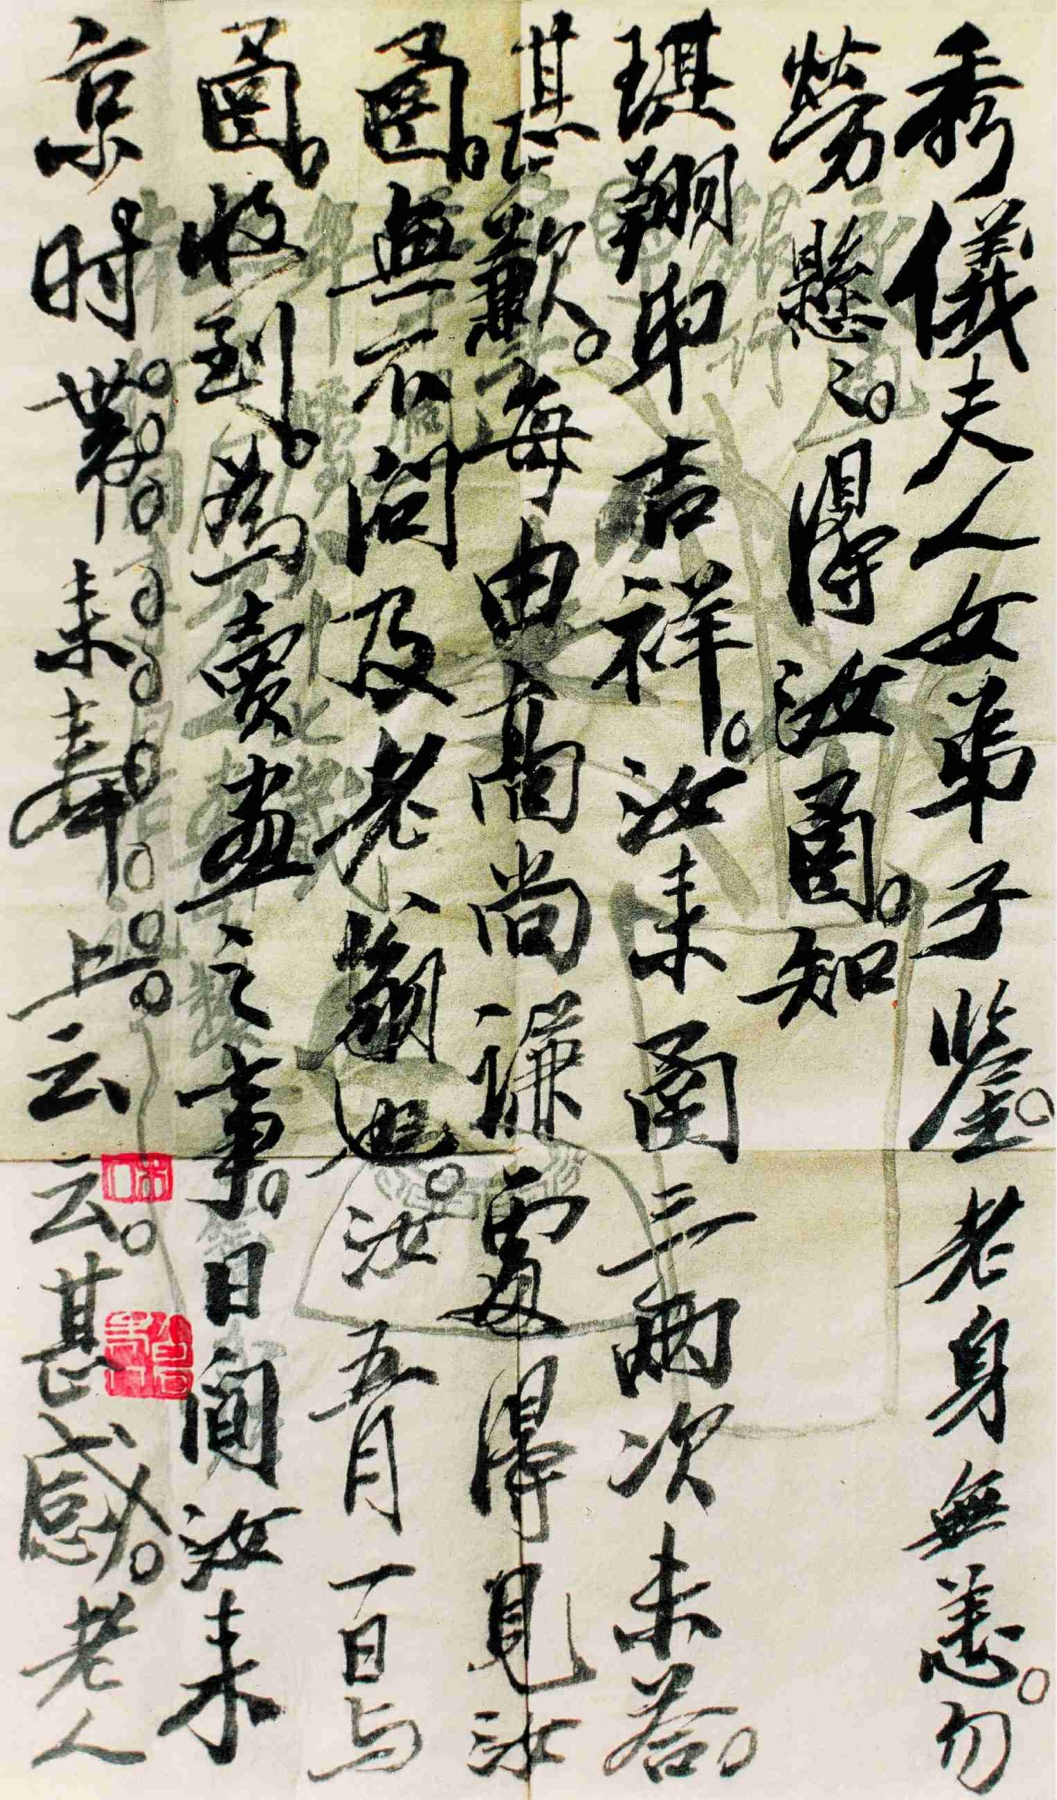 秀儀夫人女弟子鑒。老身無恙。勿
勞懸之。得汝函。知
琪翔申吉祥。汝來函三兩次未答。
甚歉。每由高尚謙處得見汝
函。無不問及老翁也。汝五月一日与
函。收到。為賣畫之事。日間汝來
京时。帶來奉上云云。甚感。老人